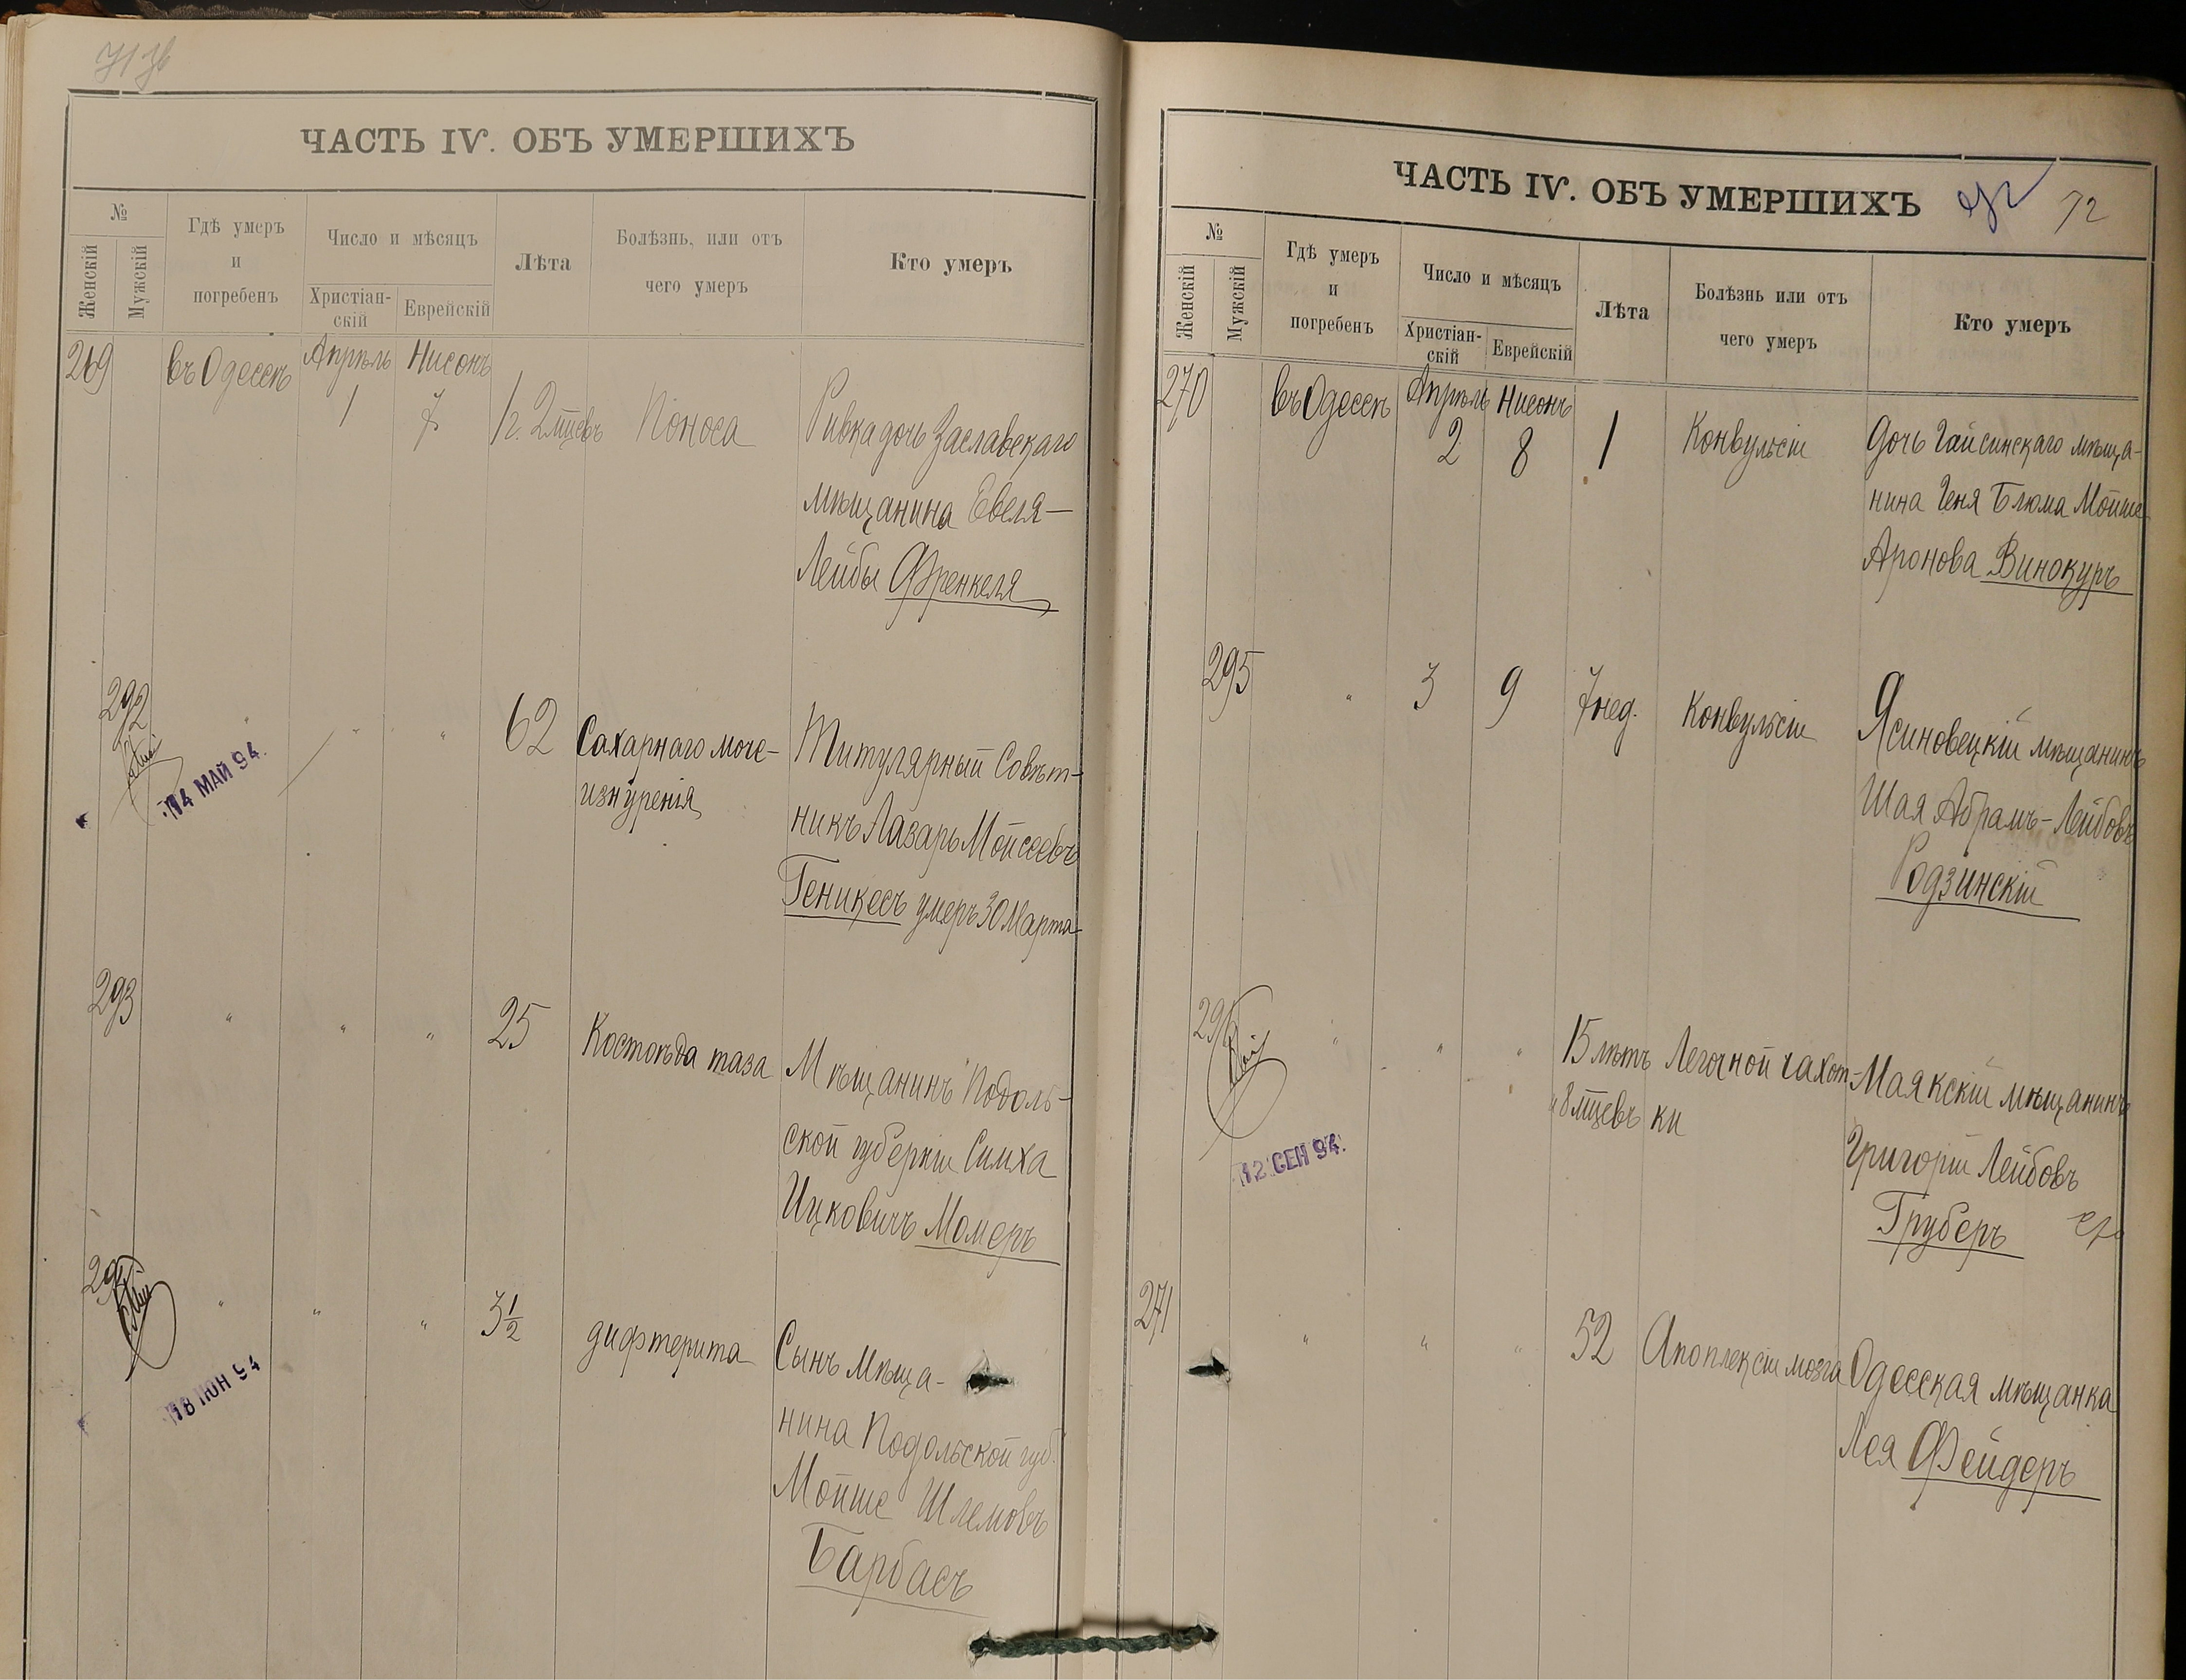 ЧАСТЬ IV. ОБЪ УМЕРШИХЪ
№
Женскій
Мужскій
Гдѣ умеръ
и
погребенъ
Число и мѣсяцъ
Христіан-
скій
Еврейскій
Лѣта
Болѣзнь, или отъ
чего умеръ
Кто умеръ
269 въ Одессѣ Апрѣль Нисонъ
1 7 1 г. 2 мцевъ Поноса Ривка дочь Заславскаго
мѣщанина Евеля-
Лейбы Френкеля
292 " " " 62 Сахарнаго моче- Титулярный Совѣт-
изнуренія никъ Лазарь Мойсеевъ
Геникесъ умеръ 30 Марта
14 МАЙ 94.
293 " " " 25 Костоѣда таза Мѣщанинъ Подоль-
ской губерніи Симха
Ицковичъ Момеръ
29 " " " 3 1/2 дифтерита Сынъ Мѣща-
нина Подольской губ.
Мойше Шлемовъ
Барбасъ
18 ІЮН 94
ЧАСТЬ IV. ОБЪ УМЕРШИХЪ 72 72
№
Женскій
Мужскій
Гдѣ умеръ
и
погребенъ
Число и мѣсяцъ
Христіан-
скій
Еврейскій
Лѣта
Болѣзнь или отъ
чего умеръ
Кто умеръ
270 въ Одессѣ Апрѣль Нисонъ
2 8 1 Конвульсіи Дочь Гайсинскаго мѣща-
нина Геня Блюма Мойше
Аронова Винокуръ
295 " 3 9 7 нед. Конвульсіи Ясиновецкій мѣщанинъ
Шая Абрамъ-Лейбовъ
Родзинскій
296 " " " 15 лѣтъ Легочной чахот- Маякскій мѣщанинъ
" 8 мцевъ ки Григорій Лейбовъ
Груберъ
12 СЕН 94.
271 " " " 52 Апоплексіи мозга Одесская мѣщанка
Лея Фейдеръ